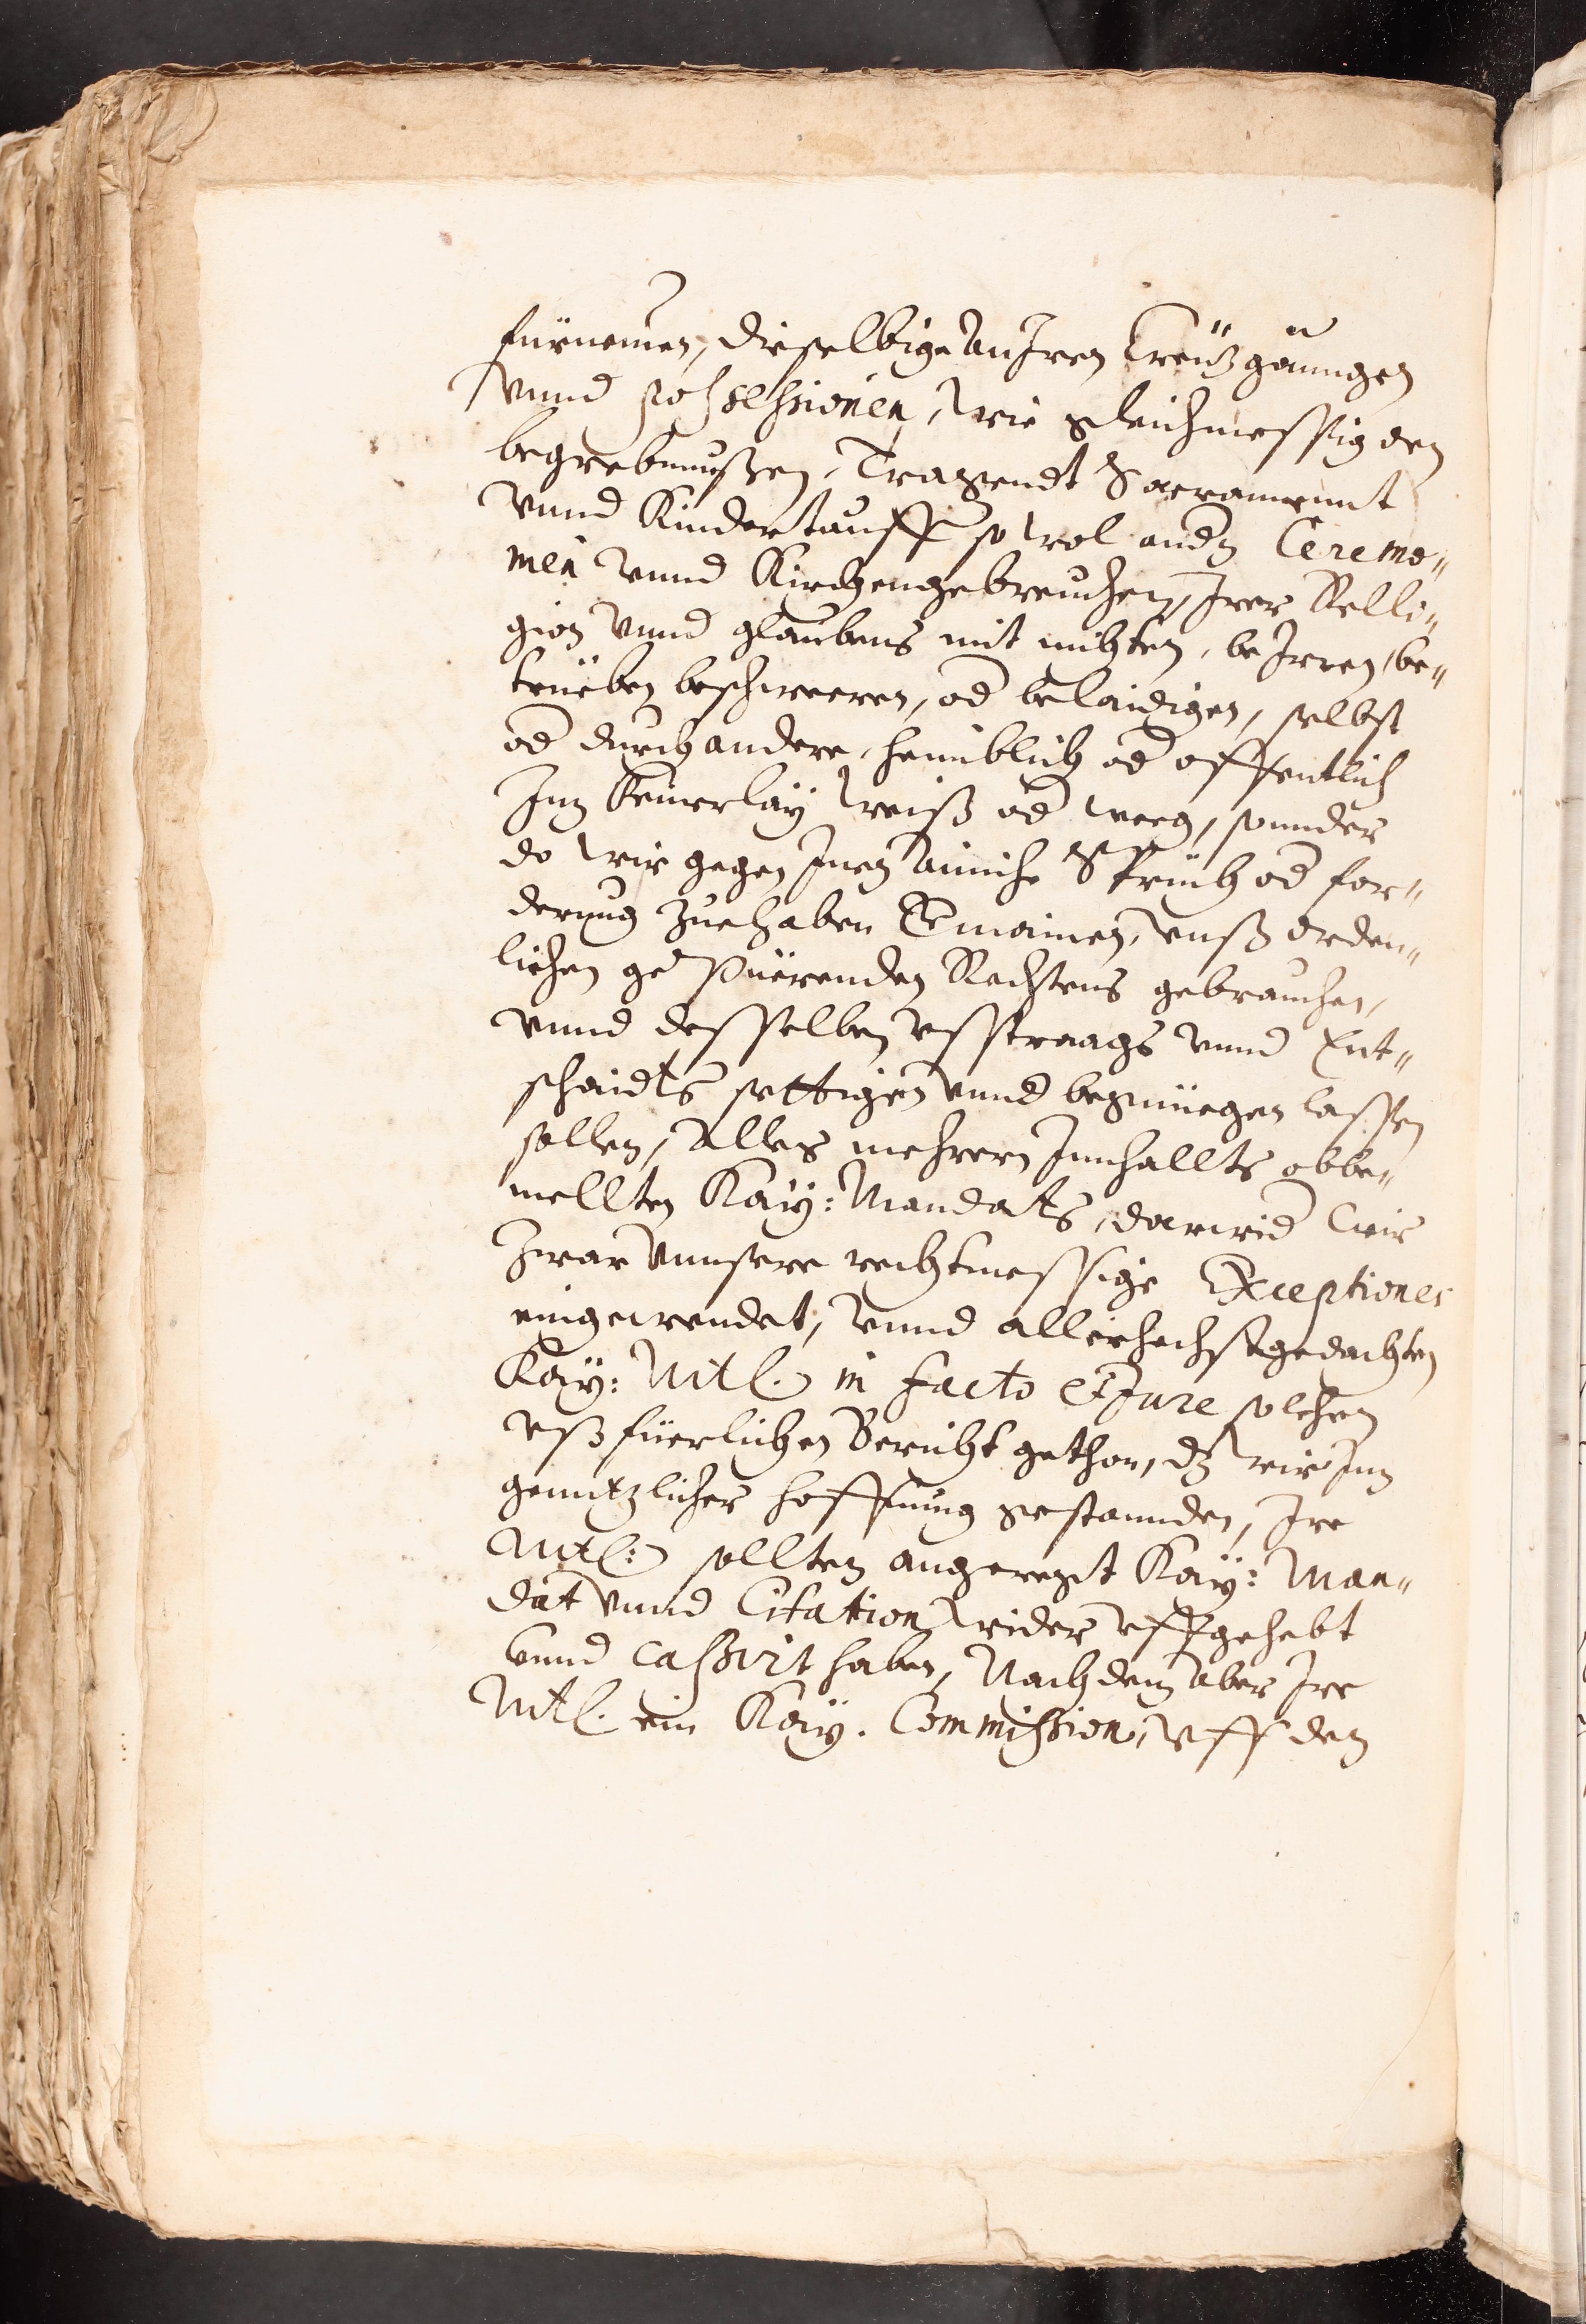 fürnemen, dieselbige an Iren Creützgäungen
vnnd possessionen, wie gleichmessig den
begrebnußen, Tragendt Sacrament
vnnd Kindertauff so wol andn Ceremo„
nien vnnd Kirchengebreuchen, Irer Relli„
gion vnnd glaubens mit nichten, beIrren, be„
trüeben beschweeren, od belaidigen, selbst
od durch andere, heimblich od offentlich
Inn Keinerlay weiß od weeg, sonnder
do wir gegen Inen ainiche Sprüch od for„
derung zue haben Vermainen, vnß orden„
lichen gepüerenden Rechtens gebrauchen,
vnnd desselben vsstraags vnnd Ent„
schaidts settigen vnnd begnüegen lassen
sollen, Alles mehrern Innhallts obbe„
mellten Kay: Mandats, darwid wir
zwar vnnsere rechtmessige Exceptiones
eingewendet, vnnd allerhechstgedachten
Kay: Mtl. in facto et Jure solchen
vßfüerlichen Bericht gethon, dz wir Inn
genntzlicher hoffnung gestannden, Ire
Mtl: sollten angeregt Kay: Man„
dat vnnd Citation wider vffgehebt
vnnd cassirt haben, Nach dem aber Ire
Mtl. ein Kay. Commission, vff den